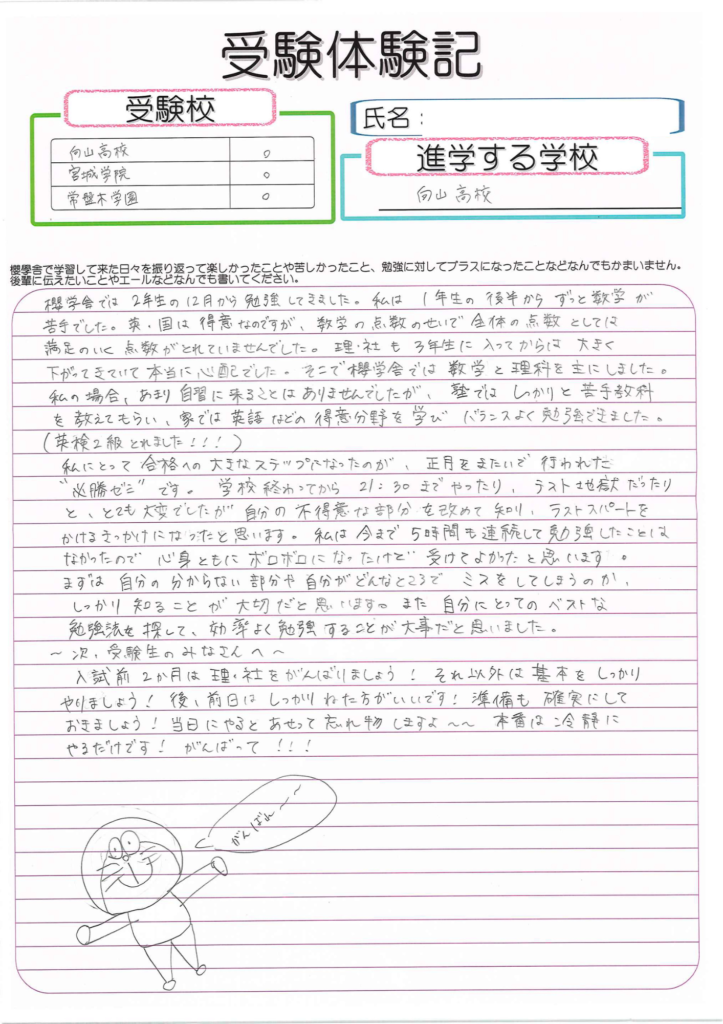 受験体験記
受験校
向山高校 ○
宮城学院 ○
常盤木学園 ○
氏名：
進学する学校
向山高校
櫻學舎で学習して来た日々を振り返って楽しかったことや苦しかったこと、勉強に対してプラスになったことなどなんでもかまいません。
後輩に伝えたいことやエールなどなんでも書いてください。
櫻学舎では2年生の12月から勉強してきました。私は1年生の後半からずっと数学が
苦手でした。英・国は得意なのですが、数学の点数のせいで全体の点数としては
満足のいく点数がとれていませんでした。理・社も3年生に入ってからは大きく
下がってきていて本当に心配でした。そこで櫻学舎では数学と理科を主にしました。
私の場合、あまり自習に来ることはありませんでしたが、塾ではしっかりと苦手教科
を教えてもらい、家では英語などの得意分野を学びバランスよく勉強できました。
(英検2級とれました!!!)
私にとって合格への大きなステップになったのが、正月をまたいで行われた
"必勝ゼミ"です。学校終わってから21:30までやったり、ラスト地獄だったり
と、とても大変でしたが自分の不得意な部分を改めて知り、ラストスパートを
かけるきっかけになったと思います。私は今まで5時間も連続して勉強したことは
なかったので心身ともにボロボロになったけど受けてよかったと思います。
まずは自分の分からない部分や自分がどんなところでミスをしてしまうのか、
しっかり知ることが大切だと思います。また自分にとってのベストな
勉強法を探して、効率よく勉強することが大事だと思いました。
～次、受験生のみなさんへ～
入試前2か月は理・社をがんばりましょう！それ以外は基本をしっかり
やりましょう！後、前日はしっかりねた方がいいです！準備も確実にして
おきましょう！当日にやるとあせって忘れ物しますよ～～ 本番は冷静に
やるだけです！がんばって!!!
がんばれ～～